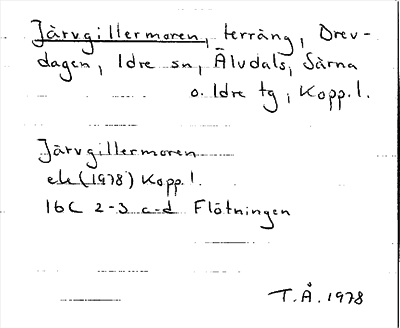 Järvgillermoren, terräng, Drev-
dagen, Idre sn, Älvdals, Särna
o. Idre tg, Kopp. l.
Järvgillermoren
ek (1978) Kopp. l.
16C 2-3 c-d Flötningen
T.Å. 1978